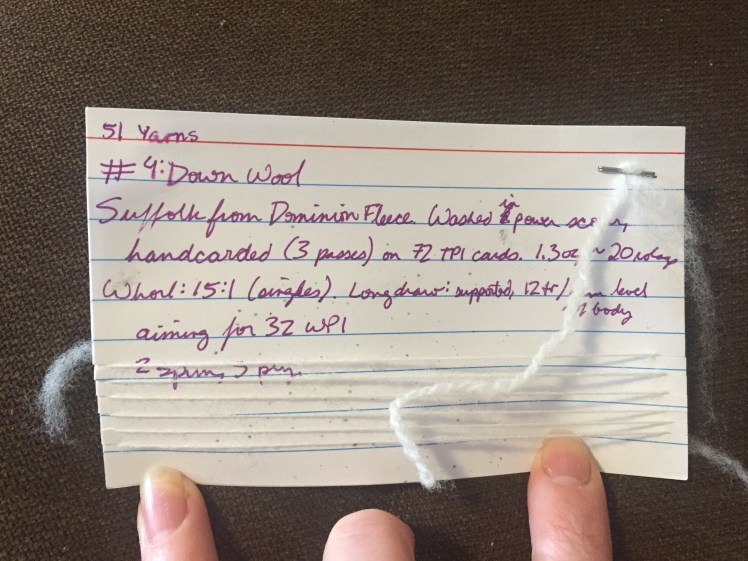 51 Yarns
#4: Down Wool
Suffolk from Dominion Fleece. Washed in power
handcarded (3 passes) on 72 TPI cards. 1.3oz ~20 rolags
Whorl: 15:1 (singles). Longdraw: supported, 12 tr/ level
body
aiming for 32 WPI
2